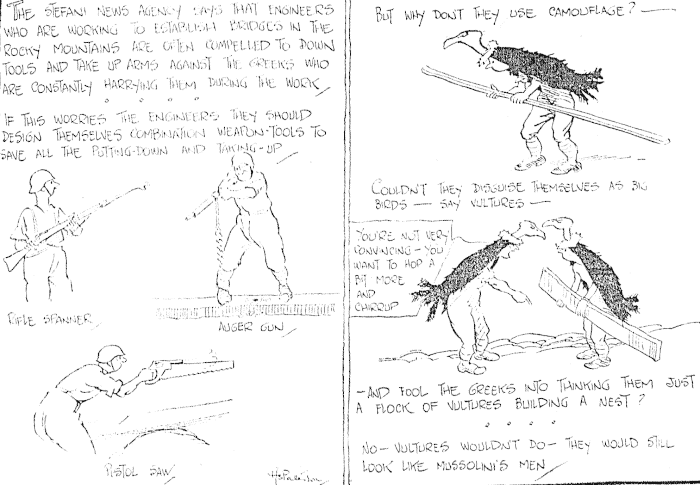 THE STEFANI NEWS AGENCY SAYS THAT ENGINEERS
WHO ARE WORKING TO ESTABLISH BRIDGES IN THE
ROCKY MOUNTAINS ARE OFTEN COMPELLED TO DOWN
TOOLS AND TAKE UP ARMS AGAINST THE GREEKS WHO
ARE CONSTANTLY HARRYING THEM DURING THE WORK
IF THIS WORRIES THE ENGINEERS THEY SHOULD
DESIGN THEMSELVES COMBINATION WEAPON-TOOLS TO
SAVE ALL THE PUTTING-DOWN AND TAKING-UP
RIFLE SPANNER
AUGER GUN
PISTOL SAW
BUT WHY DON'T THEY USE CAMOUFLAGE? —
COULDN'T THEY DISGUISE THEMSELVES AS BIG
BIRDS — SAY VULTURES —
YOU'RE NOT VERY
CONVINCING - YOU
WANT TO HOP A
BIT MORE
AND
CHIRRUP
- AND FOOL THE GREEKS INTO THINKING THEM JUST
A FLOCK OF VULTURES BUILDING A NEST?
NO - VULTURES WOULDN'T DO - THEY WOULD STILL
LOOK LIKE MUSSOLINI'S MEN